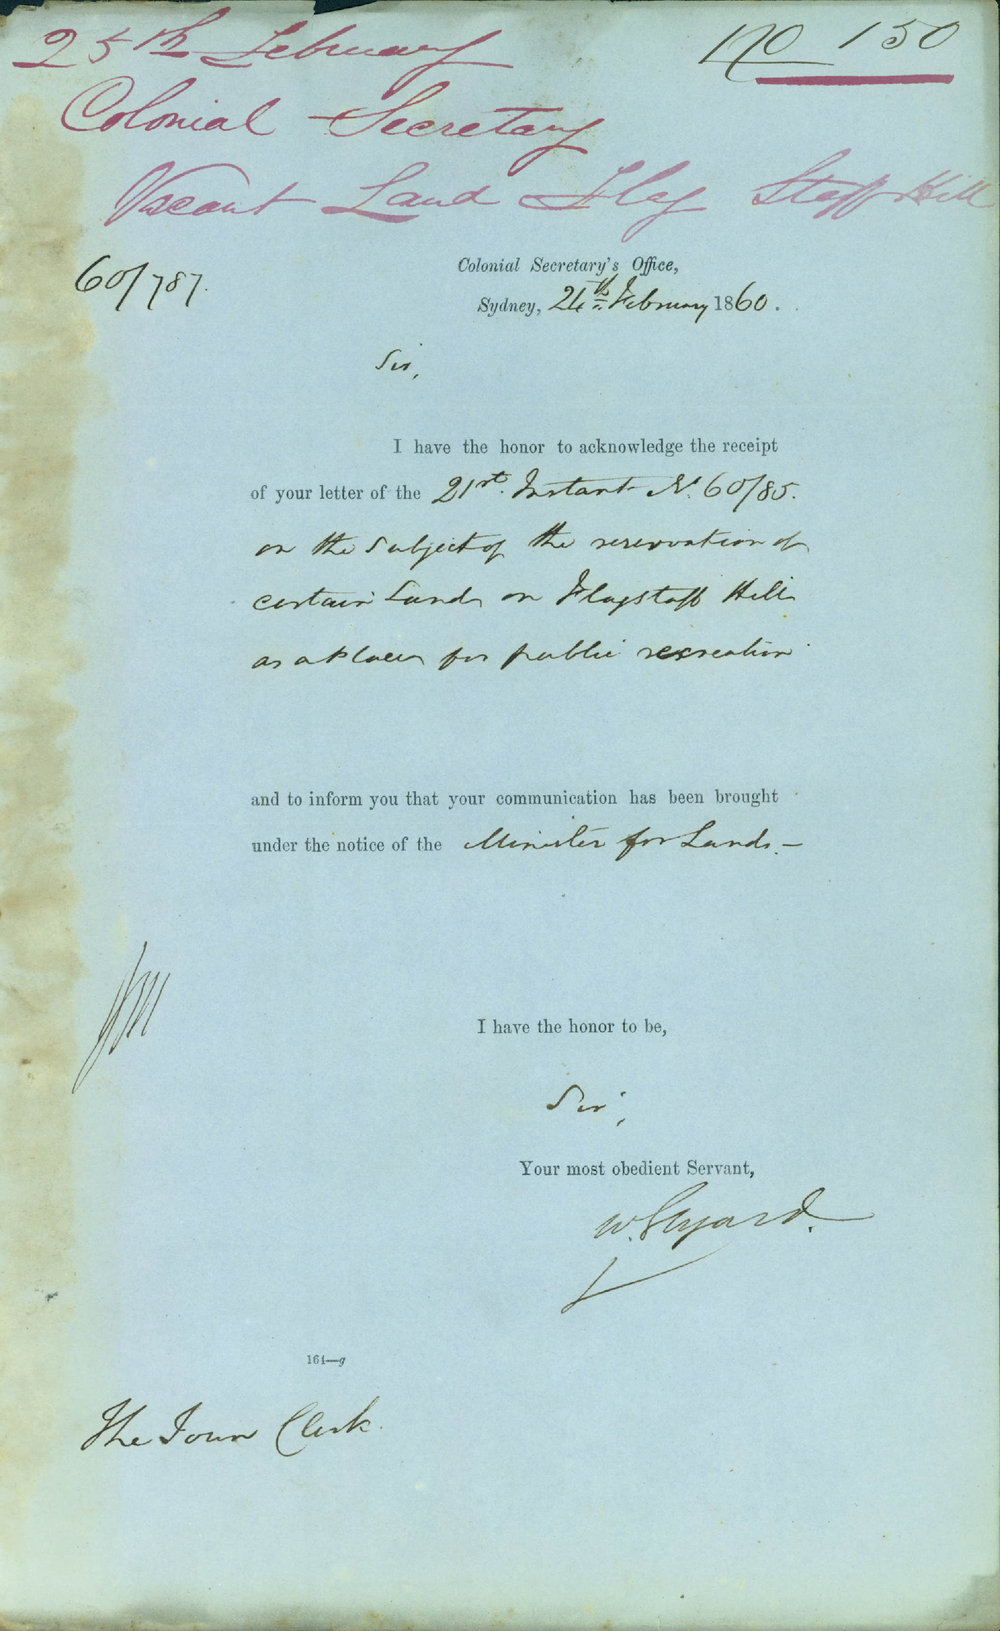 25th February
No 150
Colonial Secretary
Vacant Land Flag Staff Hill
60/787.
Colonial Secretary's Office,
Sydney, 24th February 1860.
Sir,
I have the honor to acknowledge the receipt
of your letter of the 21st. Instant No. 60/85.
on the subject of the reservation of
certain Lands on Flagstaff Hill
as a place for public recreation
and to inform you that your communication has been brought
under the notice of the Minister for Lands. –
I have the honor to be,
Sir,
Your most obedient Servant,
W. Elyard.
164—g
The Town Clerk.